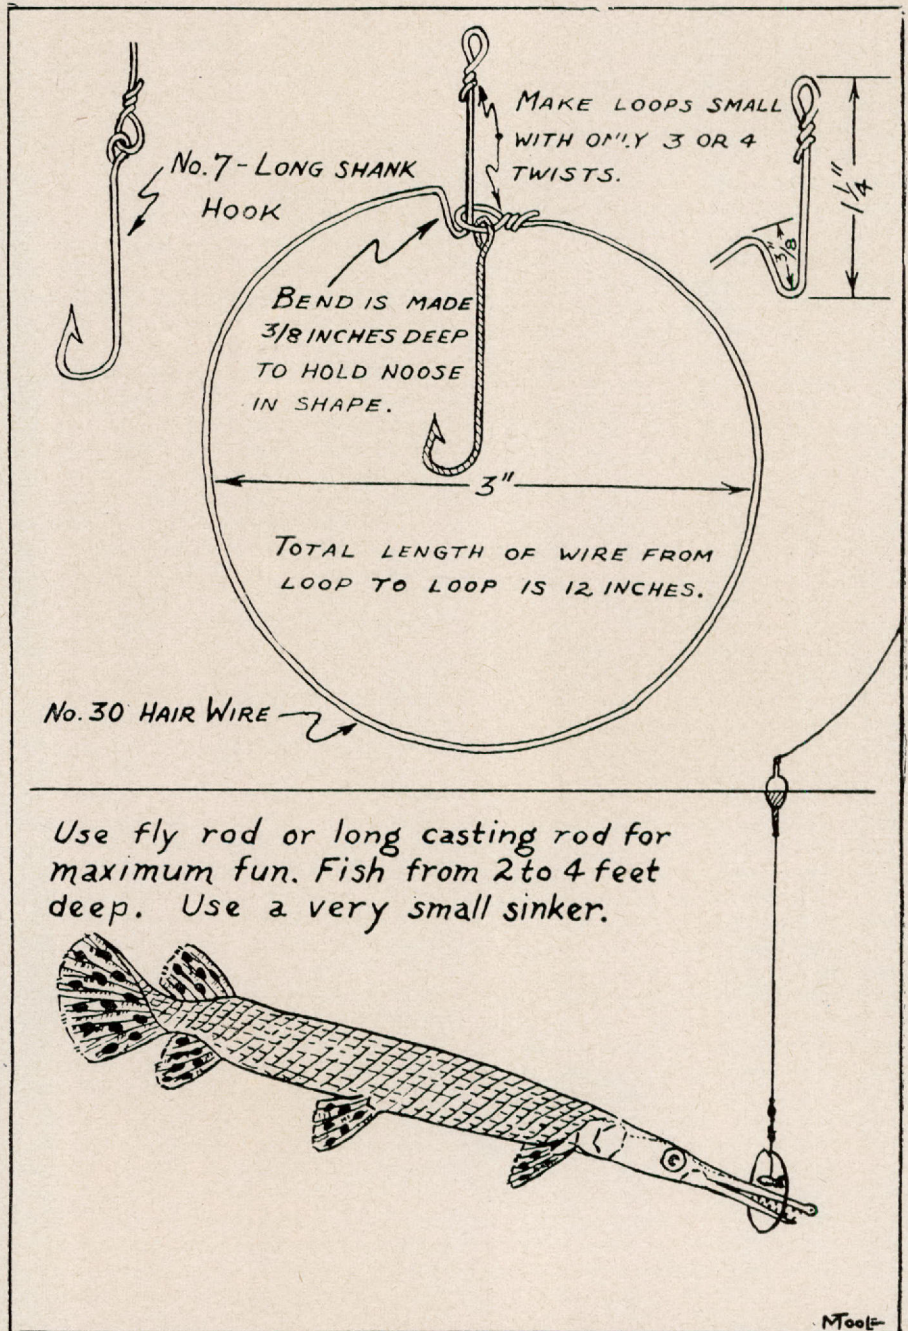 No. 7 - LONG SHANK
HOOK
MAKE LOOPS SMALL
WITH ONLY 3 OR 4
TWISTS.
1 1/4"
3/8"
BEND IS MADE
3/8 INCHES DEEP
TO HOLD NOOSE
IN SHAPE.
3"
TOTAL LENGTH OF WIRE FROM
LOOP TO LOOP IS 12 INCHES.
No. 30 HAIR WIRE
Use fly rod or long casting rod for
maximum fun. Fish from 2 to 4 feet
deep. Use a very small sinker.
M TOOLE